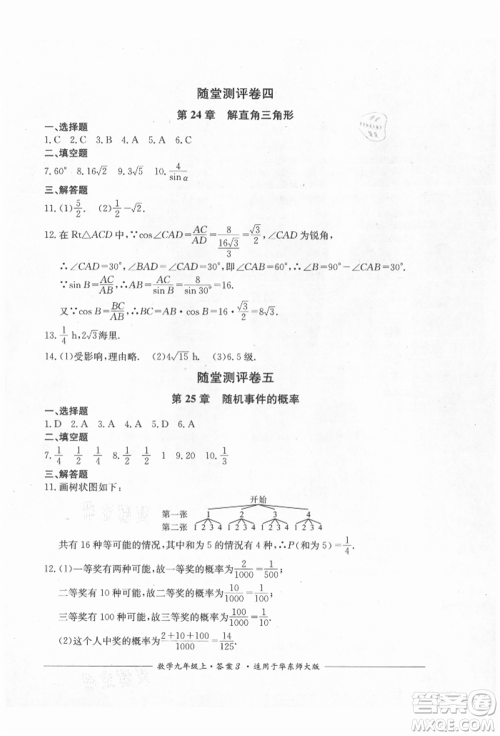 随堂测评卷四
第 24 章　解直角三角形
一、选择题
1. C　2. C　3. C　4. C　5. B　6. A
二、填空题
7. 60°　8. 16√2　9. 15√3　10. 4/sin α
三、解答题
11. (1) 5/2.　(2) −√2.
12. 在 Rt△ACD 中，∵cos∠CAD=AC/AD=8/(16√3/3)=√3/2，∠CAD 为锐角，
∴∠CAD=30°，∠BAD=∠CAD=30°，即∠CAB=60°.
∴∠B=90°−∠CAB=30°. ∵sin B=AC/AB，∴AB=AC/sin B=8/sin 30°=16.
又∵cos B=BC/AB，∴BC=AB·cos B=16×√3/2=8√3.
13. 1/4 h，2√3海里.
14. (1)受影响，理由略.　(2)4√15 h.　(3)6.5级.
随堂测评卷五
第 25 章　随机事件的概率
一、选择题
1. D　2. A　3. D　4. A　5. A　6. A
二、填空题
7. 1/4　1/2　1/4　8. 1/2　1　9. 20　10. 1/3
三、解答题
11. 画树状图如下：
开始
第一张　1　2　3　4
第二张　2 3 4　1 3 4　1 2 4　1 2 3
共有 16 种等可能的情况，其中和为 5 的情况有 4 种，∴P(和为 5)=1/4.
12. (1)一等奖有两种可能，故一等奖的概率为2/1000=1/500；
二等奖有 10 种可能，故二等奖的概率为10/1000=1/100；
三等奖有 100 种可能，故三等奖的概率为100/1000=1/10.
(2)这个人中奖的概率为(2+10+100)/1000=14/125.
数学九年级上·答案 3·适用于华东师大版